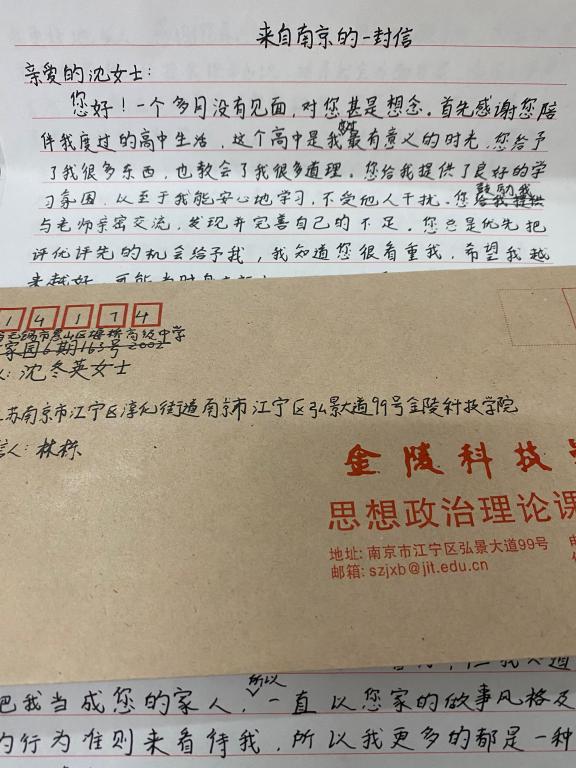 来自南京的一封信
亲爱的沈女士:
您好!一个多月没有见面,对您甚是想念。首先感谢您陪
伴我度过的高中生活,这个高中是我最有意义的时光,您给予
了我很多东西,也教会了我很多道理。您给我提供了良好的学
习氛围,以至于我能安心地学习,不受他人干扰。您鼓励我
与老师亲密交流,发现并完善自己的不足。您总是优先把
评优评先的机会给予我,我知道您很看重我,希望我越
来越好,可能当时
14174
市锡山区梅桥高级中学
家园6期163号2002
沈冬英女士
苏南京市江宁区淳化街道南京市江宁区弘景大道99号金陵科技学院
信人:林栎
金陵科技学
思想政治理论课
地址:南京市江宁区弘景大道99号
邮箱:szjxb@jit.edu.cn
把我当成您的家人,所以一直以您家的做事风格及
的行为准则来看待我,所以我更多的都是一种